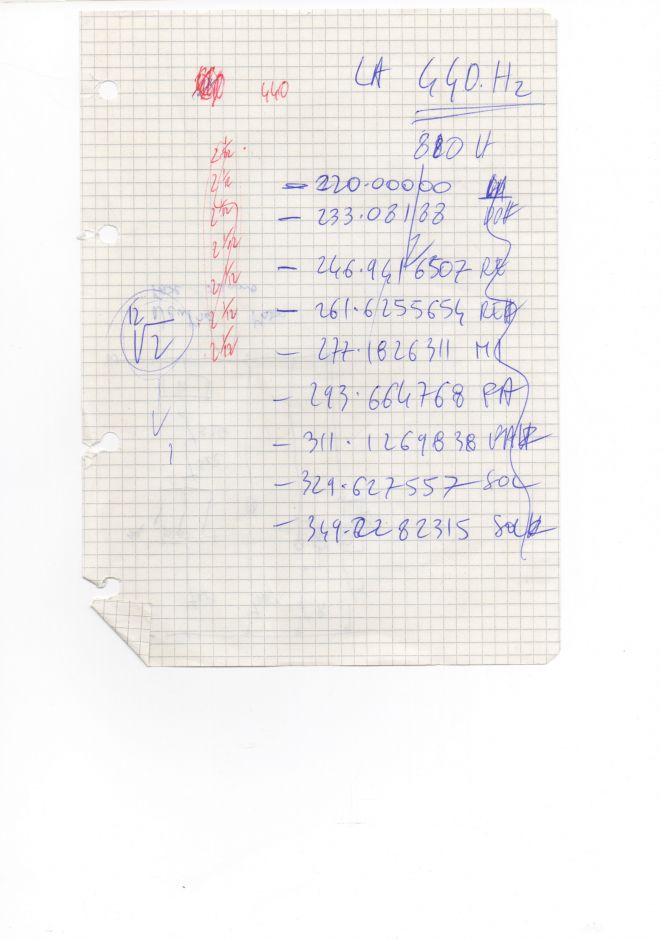 440 LA 440.Hz
880 H
2^1/12
2^1/12
2^1/12
2^1/12
2^1/12
2^1/12
2^1/12
- 220.00000
- 233.08188
- 246.9416507 RE
- 261.6255654 RE#
- 277.1826311 MI
- 293.664768 FA
- 311.1269838 FA#
- 329.627557 SOL
- 349.2282315 SOL#
12√2